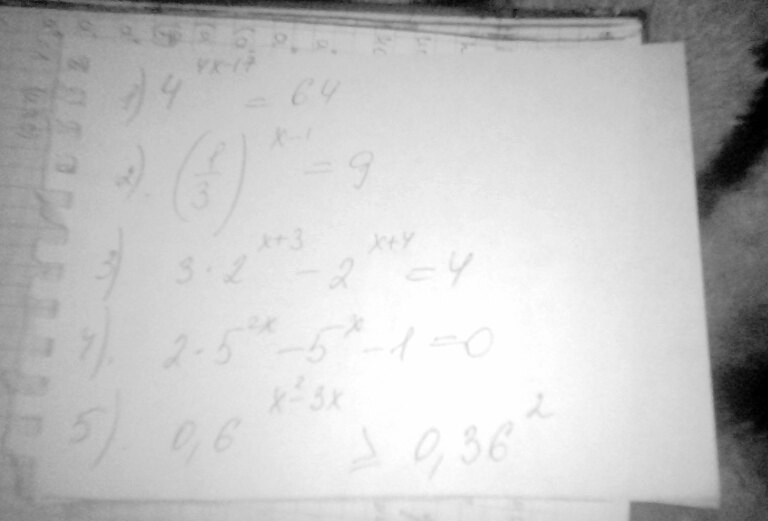 1) 4^{4x-17} = 64
2). (1/3)^{x-1} = 9
3) 3 · 2^{x+3} - 2^{x+4} = 4
4). 2 · 5^{2x} - 5^{x} - 1 = 0
5). 0,6^{x²-3x} ≥ 0,36^{2}